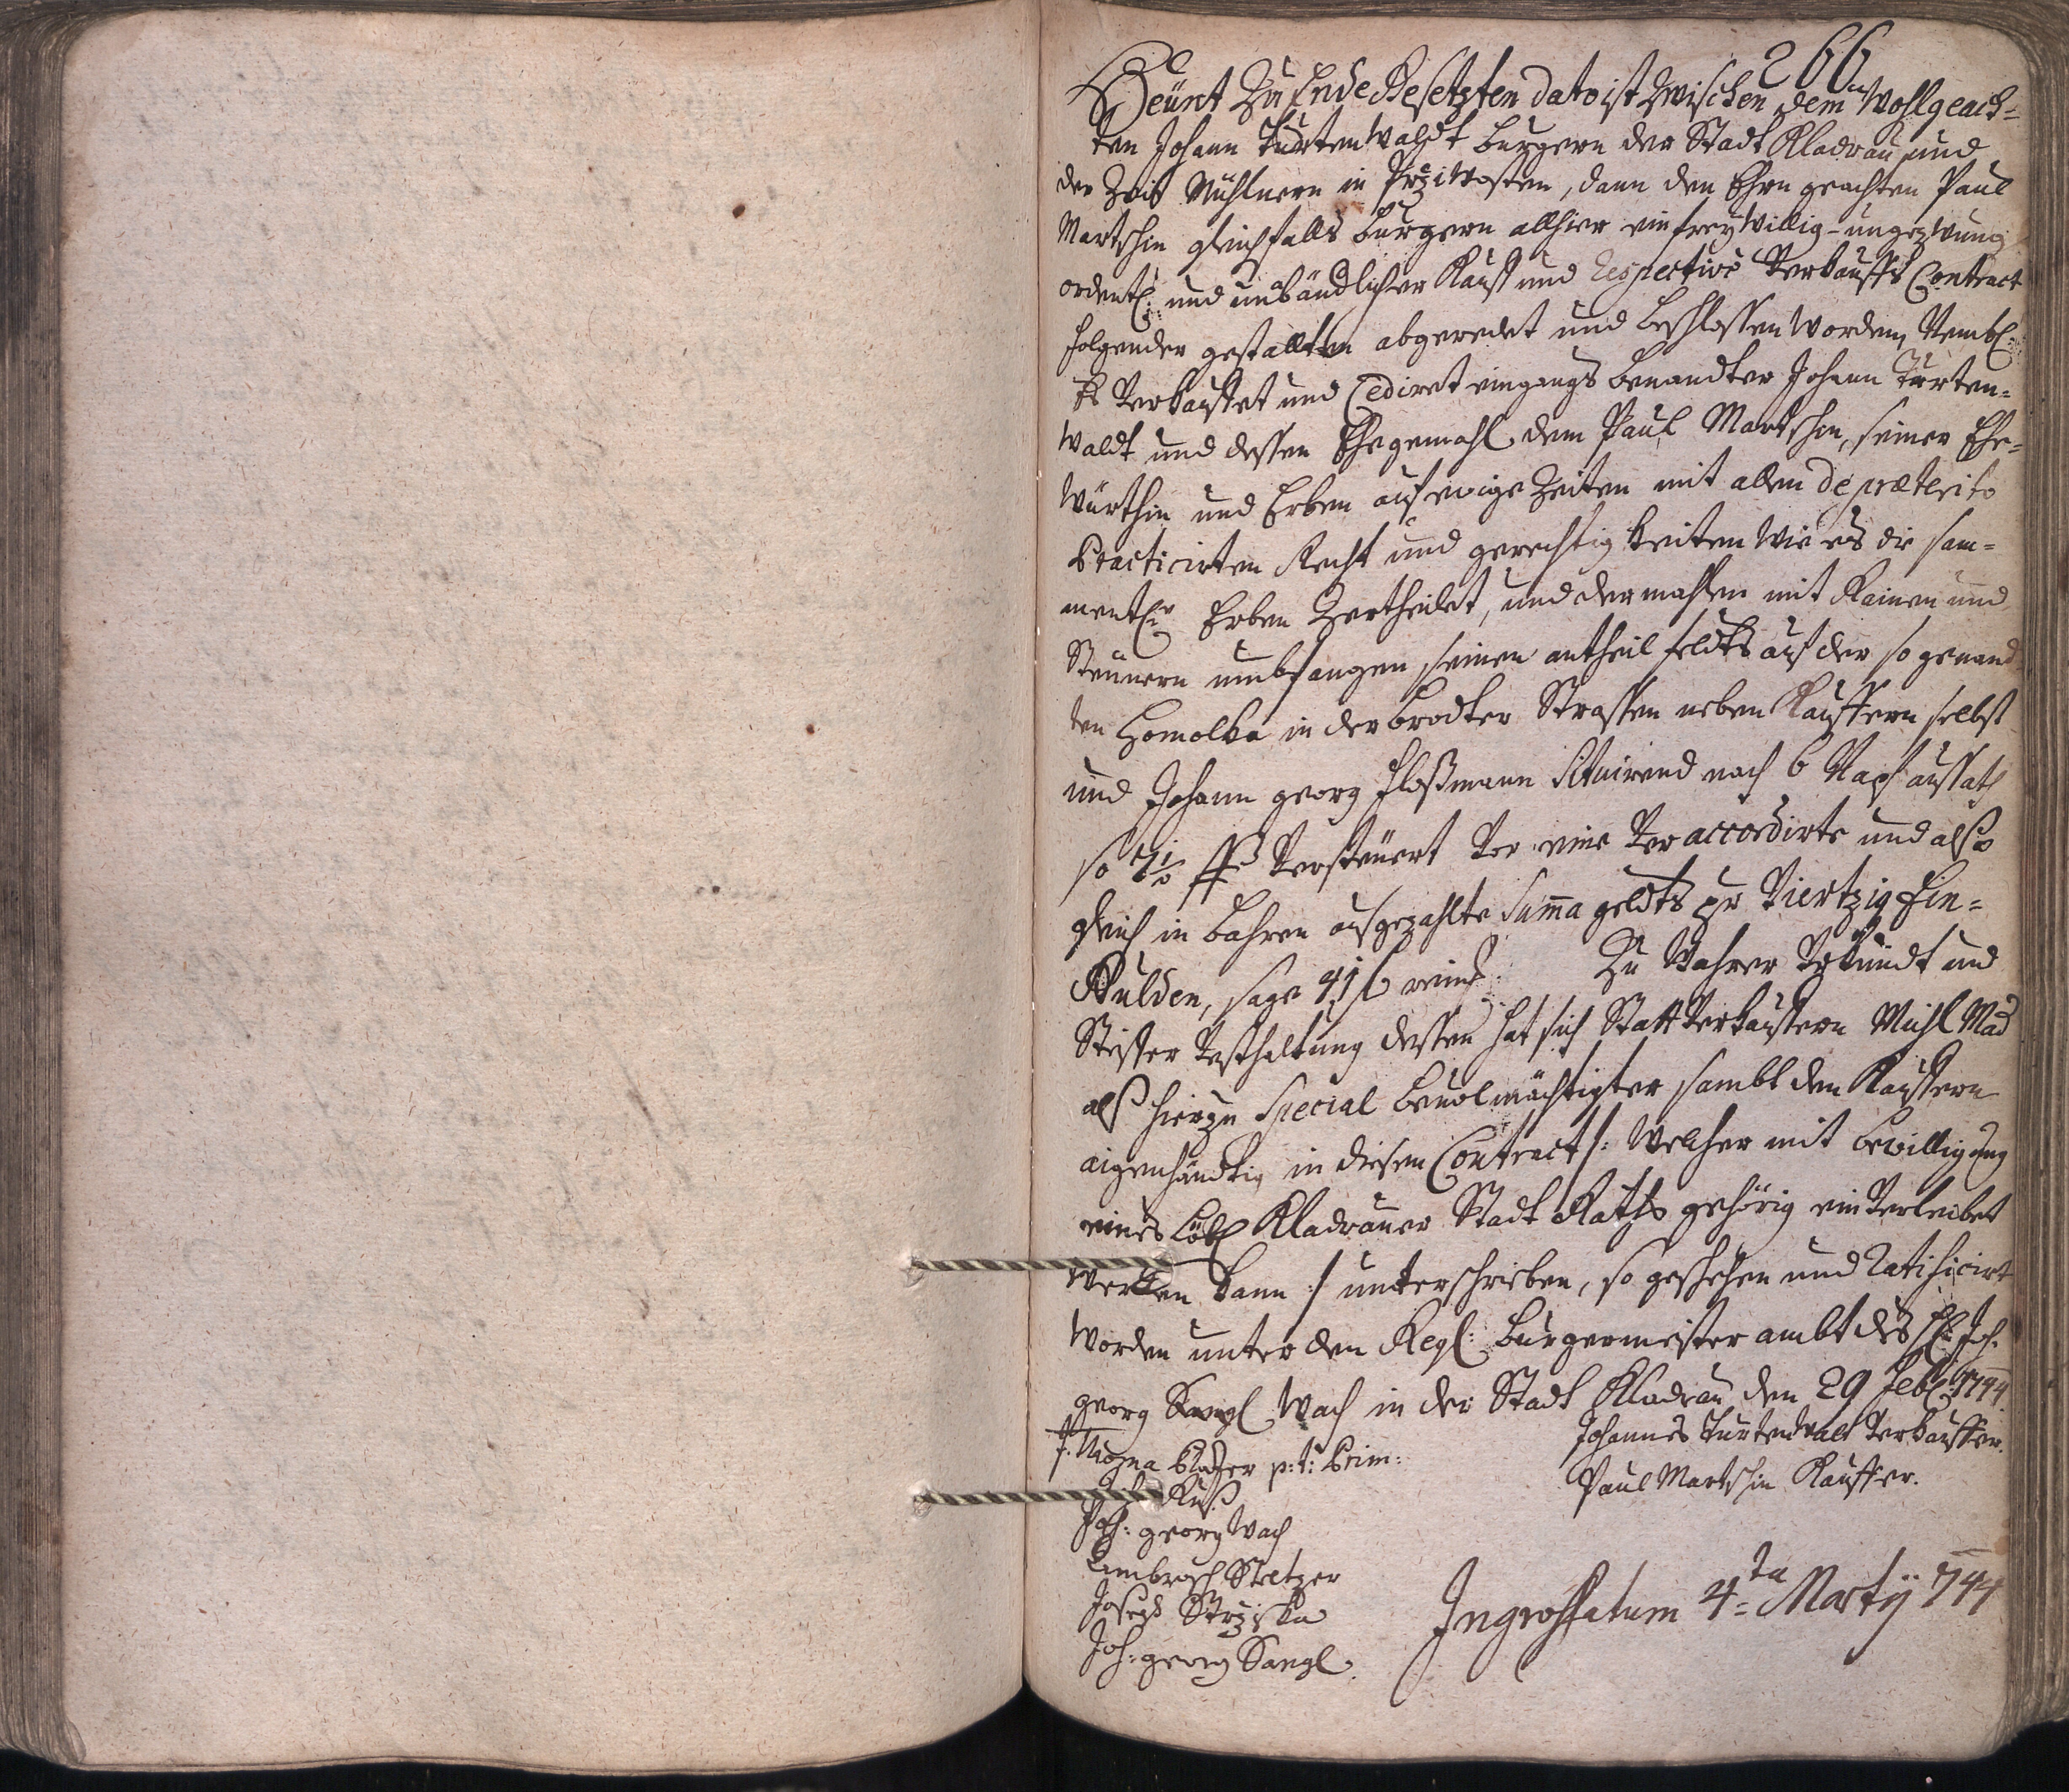 266
Heünt Zu Ende Gesetzten dato ist Zwischen dem Wohlgeach-
ten Johann Türtenwaldt burgern der Stadt Kladrau und
der Zeit Mühlnern in Prziwosten, dann den Ehrn geachten Paul
Martschin gleichfalls burgern allhier ein freÿwillig-ungezwung
ordentl: und unbändlicher Kauff und Respective Verkauffs Contract
folgender gestallten abgeredet und beschlossen worden, Nembl:
Es Verkauffet und Cediret eingangs benandter Johann Türten-
waldt und dessen Ehegemahl dem Paul Martschin, seiner Ehe-
würthin und Erben auf ewige Zeiten mit allen de præterito
Practicirten Recht und gerechtigkeiten wie es die sam-
mentl: Erben Zertheilet, und dermahlen mit Rainen und
Steünern umbfangen seinen antheil feldts auf der so genand
ten Homolka in der brodter Strassen neben Kauffern selbst
und Johann georg Floßmann Situirend nach 6 Napf aussath
so Versteüert Vor eine Veraccordirte und also
gleich in bahren ausgezahlte Summa geldts pr Viertzig Ein-
Gulden, sage 41 f rein: Zu Wahrer Urkundt und
Steffer Vesthaltung dessen hat sich Statt Verkauffern Michl Mad
alß hierzu Special bevolmächtigter sambt den Kauffern
aigenhändtig in diesen Contract /: Welcher mit bewilligung
eines Löbl Kladrauer Stadt Raths gehörig ein Verleibet
werden kann :/ unterschrieben, so geschehen und Ratificirt
worden unter den Regl: burgermeister ambt des H: Joh.
georg Wach in der Stadt Kladrau den 29 Feb: 1744
Johannes Türtenwalt Verkauffer.
Paul Martschin Kauffer.
p: t: Prim:
Ruß
Joh: georg Wach
Ambrosch Steltzer
Joseph Strziska
Joh: georg Sangl
Ingrossatum 4ta Martÿ 744